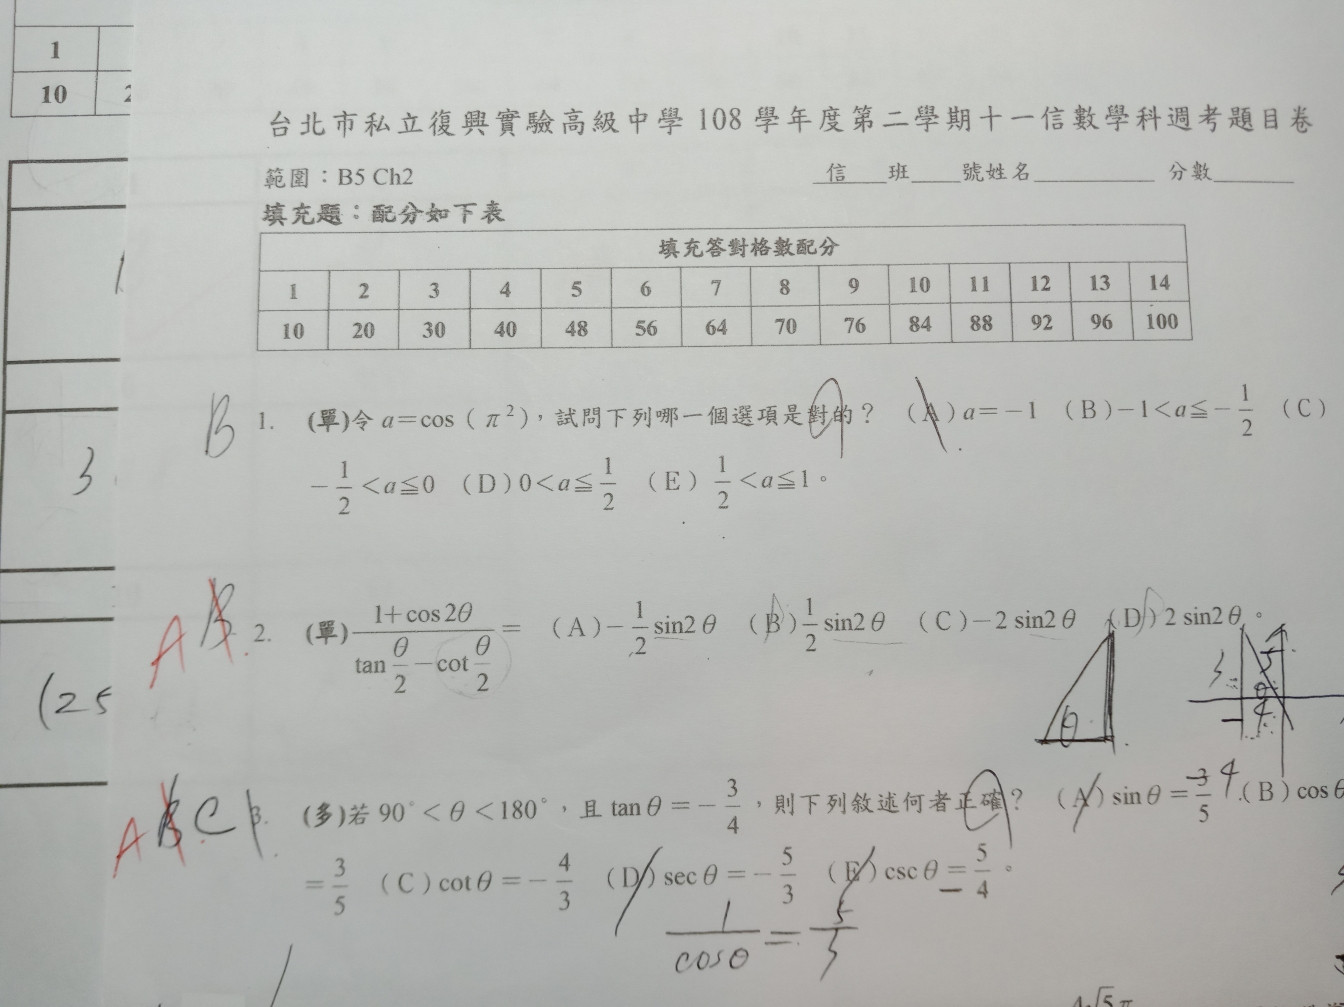 1
10 2
台北市私立復興實驗高級中學 108 學年度第二學期十一信數學科週考題目卷
範圍：B5 Ch2 信____班____號姓名__________ 分數_______
填充題：配分如下表
填充答對格數配分
1 2 3 4 5 6 7 8 9 10 11 12 13 14
10 20 30 40 48 56 64 70 76 84 88 92 96 100
B 1. (單)令 a＝cos（π²），試問下列哪一個選項是對的？ （A）a＝－1 （B）－1＜a≦－1/2 （C）
3
－1/2＜a≦0 （D）0＜a≦1/2 （E）1/2＜a≦1。
A B 2. (單) (1+cos2θ)/(tan θ/2 － cot θ/2)＝ （A）－1/2 sin2θ （B）1/2 sin2θ （C）－2 sin2θ （D）2 sin2θ。
(25
θ
3 5
4
A B C 3. (多)若 90°＜θ＜180°，且 tanθ＝－3/4，則下列敘述何者正確？ （A）sinθ＝3/5 4 （B）cosθ
＝3/5 （C）cotθ＝－4/3 （D）secθ＝－5/3 （E）cscθ＝5/4。
1/cosθ = 5/3
4√5π